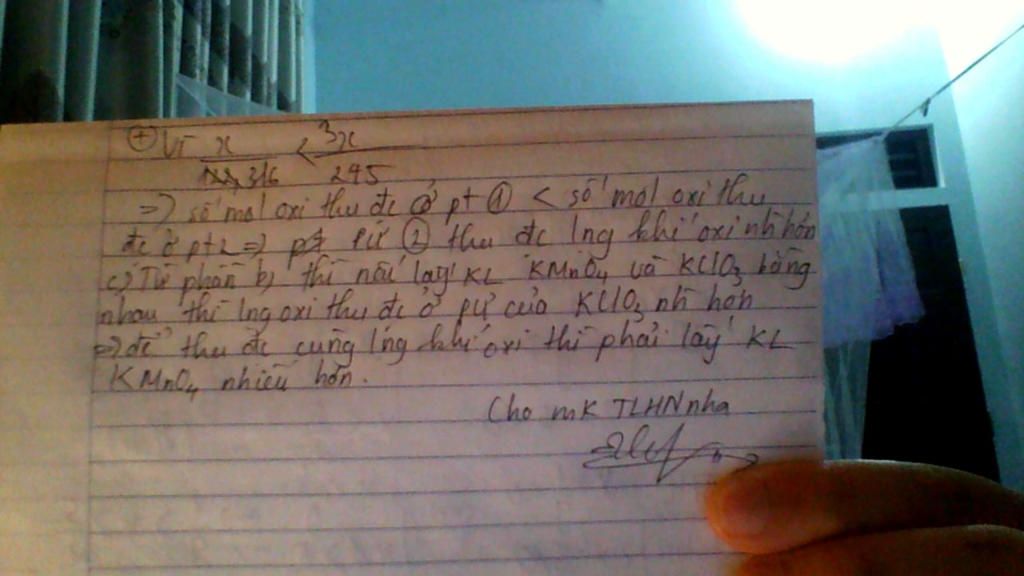 ⊕ Vì x/316 < 3x/245
=> số mol oxi thu đc ở pt ① < số mol oxi thu
đc ở pt2 => pứ ② thu đc lng khí oxi nh hơn
c) Từ phần b, thì nếu lấy KL KMnO4 và KClO3 bằng
nhau thì lng oxi thu đc ở pứ của KClO3 nh hơn
=> để thu đc cùng lng khí oxi thì phải lấy KL
KMnO4 nhiều hơn.
Cho mK TLHN nha